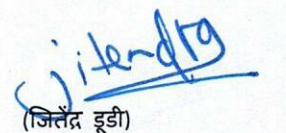 Jitendra
(जितेंद्र डूडी)